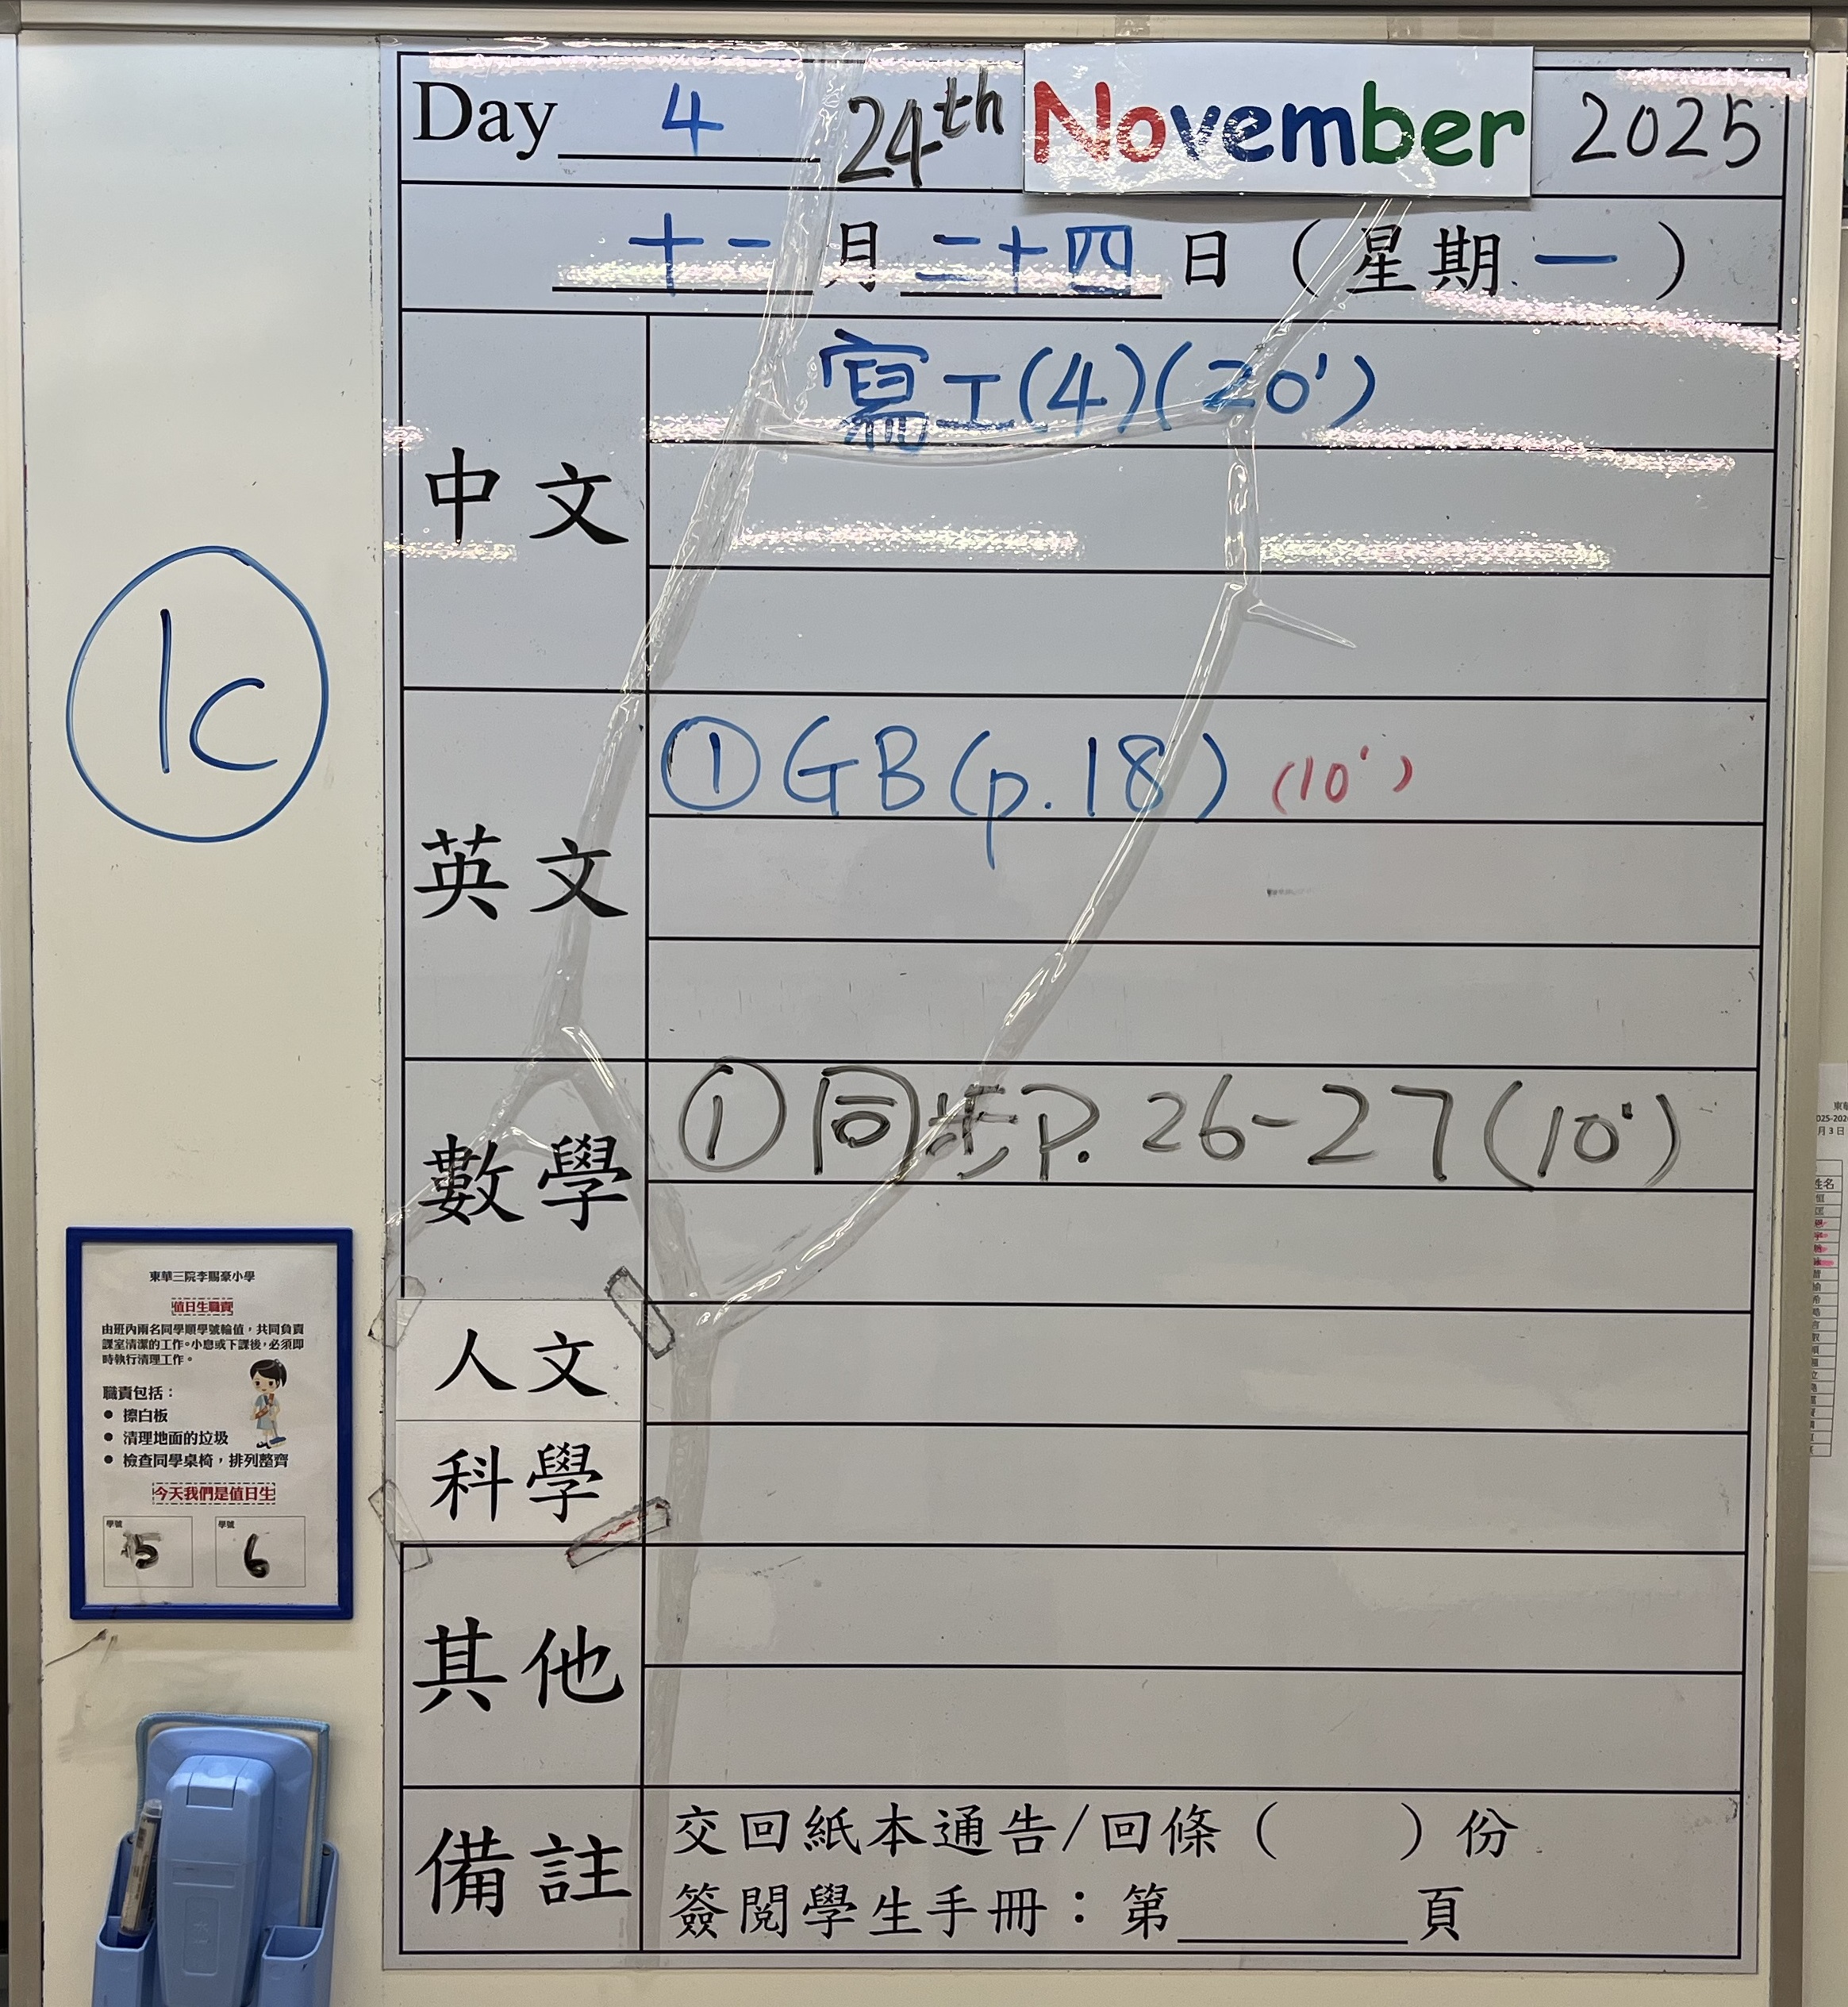 Day 4 24th November 2025
十一月二十四日（星期一）
中文
寫工(4)(20')
英文
①GB(p.18) (10')
數學
①同步P. 26-27(10')
人文
科學
其他
備註
交回紙本通告/回條（　）份
簽閱學生手冊：第____頁
1C
東華三院李賜豪小學
值日生職責
由班內兩名同學順學號輪值，共同負責
課室清潔的工作。小息或下課後，必須即
時執行清理工作。
職責包括：
● 擦白板
● 清理地面的垃圾
● 檢查同學桌椅，排列整齊
今天我們是值日生
學號 5 學號 6
姓名